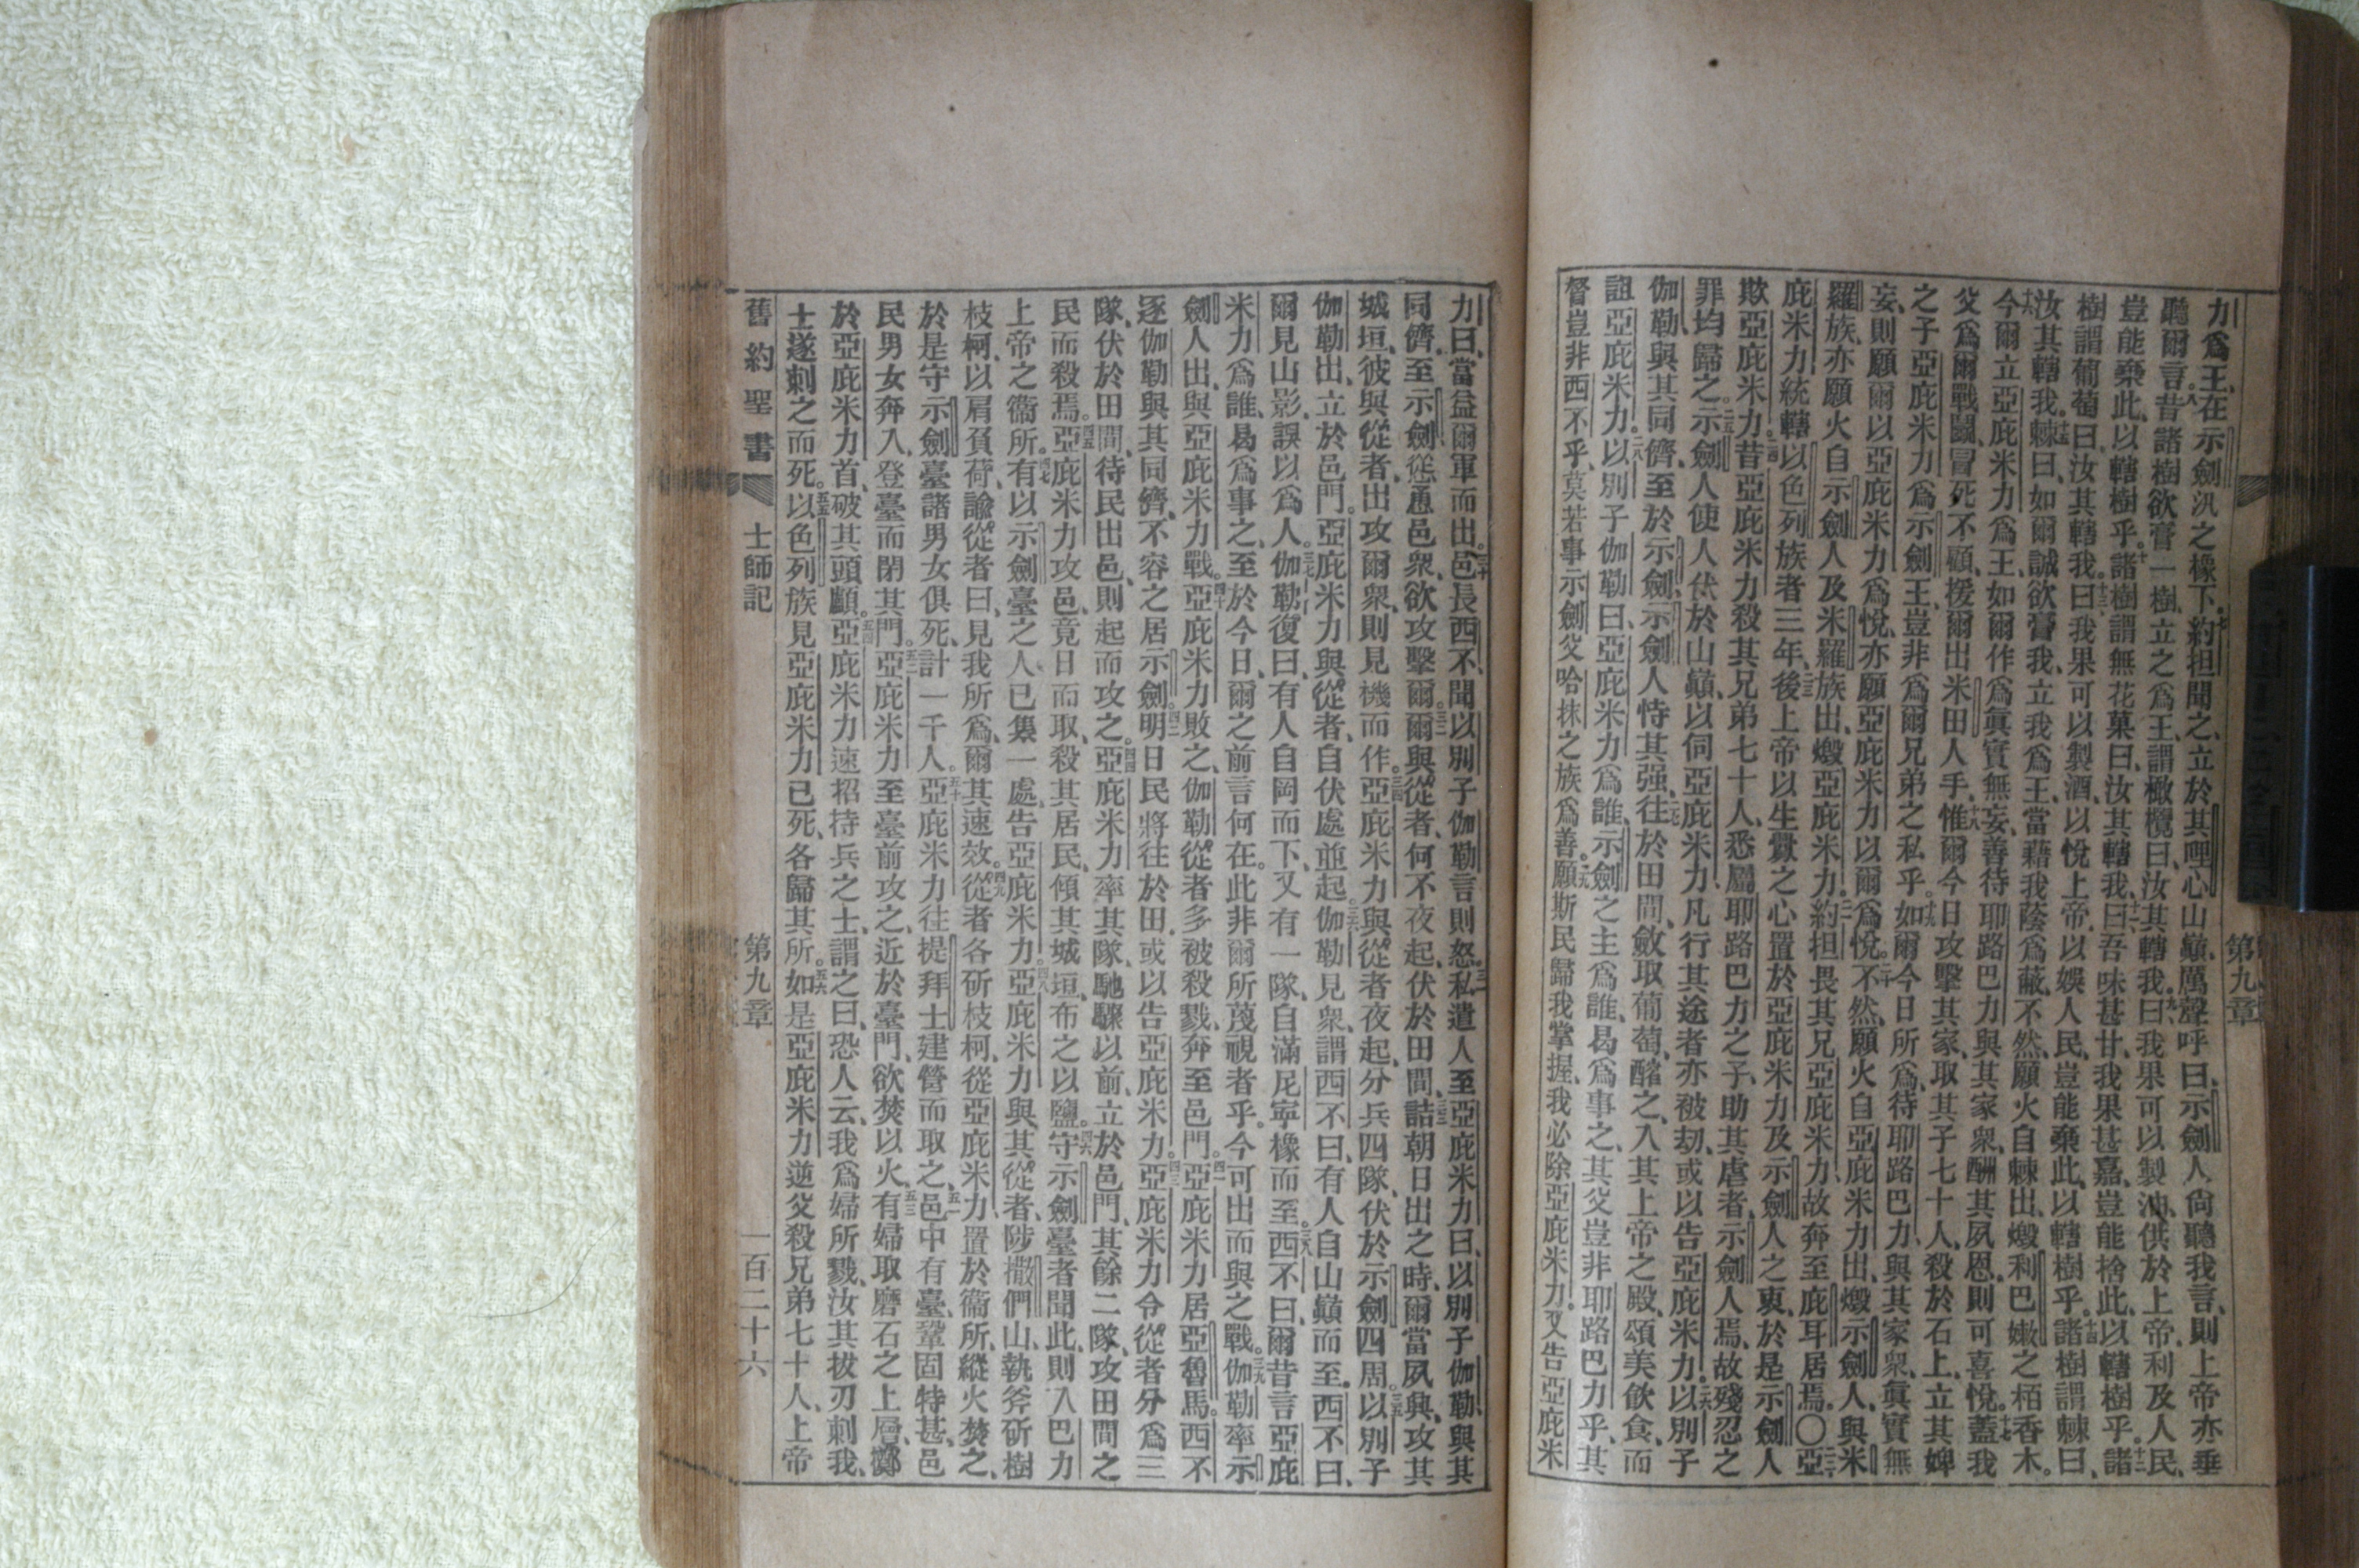 力爲王、在示劍汛之橡下、七約担聞之、立於其哩心山巔、厲聲呼曰、示劍人尙聽我言、則上帝亦垂
聽爾言、八昔諸樹欲膏一樹、立之爲王、謂橄欖曰、汝其轄我、九曰我果可以製油、供於上帝、利及人民、
豈能棄此、以轄樹乎。十諸樹謂無花菓曰、汝其轄我、十一曰吾味甚甘、我果甚嘉、豈能捨此、以轄樹乎。十二諸
樹謂葡萄曰、汝其轄我、十三曰我果可以製酒、以悅上帝、以娛人民、豈能棄此、以轄樹乎。十四諸樹謂棘曰、
汝其轄我。十五棘曰、如爾誠欲膏我、立我爲王、當藉我蔭爲蔽、不然、願火自棘出、燬利巴嫩之栢香木。
十六今爾立亞庇米力爲王、如爾作爲眞實無妄、善待耶路巴力與其家衆、酬其夙恩、則可喜悅、十七蓋我
父爲爾戰鬬、冒死不顧、援爾出米田人手、十八惟爾今日攻擊其家、取其子七十人、殺於石上、立其婢
之子亞庇米力爲示劍王、豈非爲爾兄弟之私乎。十九如爾今日所爲、待耶路巴力與其家衆、眞實無
妄、則願爾以亞庇米力爲悅、亦願亞庇米力以爾爲悅。二十不然、願火自亞庇米力出、燬示劍人、與米
羅族、亦願火自示劍人及米羅族出、燬亞庇米力。二一約担畏其兄亞庇米力、故奔至庇耳居焉。〇二二亞
庇米力統轄以色列族者三年、二三後上帝以生釁之心置於亞庇米力及示劍人之衷、於是示劍人
欺亞庇米力。二四昔亞庇米力殺其兄弟七十人、悉屬耶路巴力之子、助其虐者、示劍人焉、故殘忍之
罪均歸之。二五示劍人使人伏於山巔、以伺亞庇米力、凡行其途者亦被刼、或以告亞庇米力。二六以別子
伽勒與其同儕、至於示劍、示劍人恃其强、二七往於田間、斂取葡萄、醡之、入其上帝之殿、頌美飲食、而
詛亞庇米力。二八以別子伽勒曰、亞庇米力爲誰、示劍之主爲誰、曷爲事之、其父豈非耶路巴力乎、其
督豈非西不乎、莫若事示劍父哈抹之族爲善。二九願斯民歸我掌握、我必除亞庇米力。又告亞庇米
第九章
力曰、當益爾軍而出。三十邑長西不聞以別子伽勒言則怒、三一私遣人至亞庇米力曰、以別子伽勒與其
同儕、至示劍慫恿邑衆、欲攻擊爾。三二爾與從者、何不夜起、伏於田間、三三詰朝日出之時、爾當夙興、攻其
城垣、彼與從者、出攻爾衆、則見機而作。三四亞庇米力與從者夜起、分兵四隊、伏於示劍四周。三五以別子
伽勒出、立於邑門。亞庇米力與從者、自伏處並起。三六伽勒見衆、謂西不曰、有人自山巔而至。西不曰、
爾見山影、誤以爲人。三七伽勒復曰、有人自岡而下、又有一隊、自滿尼寧橡而至。三八西不曰、爾昔言亞庇
米力爲誰、曷爲事之、至於今日、爾之前言何在。此非爾所蔑視者乎。今可出而與之戰。三九伽勒率示
劍人出、與亞庇米力戰。四十亞庇米力敗之、伽勒從者多被殺戮、奔至邑門。四一亞庇米力居亞魯馬。西不
逐伽勒與其同儕、不容之居示劍。四二明日民將往於田、或以告亞庇米力。四三亞庇米力令從者分爲三
隊、伏於田間、待民出邑、則起而攻之。四四亞庇米力率其隊、馳驟以前、立於邑門、其餘二隊、攻田間之
民而殺焉。四五亞庇米力攻邑、竟日而取、殺其居民、傾其城垣、布之以鹽。四六守示劍臺者聞此、則入巴力
上帝之衞所。四七有以示劍臺之人已集一處、告亞庇米力。四八亞庇米力與其從者、陟撒們山、執斧斫樹
枝柯、以肩負荷、諭從者曰、見我所爲、爾其速效。四九從者各斫枝柯、從亞庇米力、置於衞所、縱火焚之、
於是守示劍臺諸男女俱死、計一千人。五十亞庇米力往提拜士、建營而取之、五一邑中有臺、鞏固特甚、邑
民男女奔入、登臺而閉其門。五二亞庇米力至臺前攻之、近於臺門、欲焚以火、五三有婦取磨石之上層、擲
於亞庇米力首、破其頭顱。五四亞庇米力速招持兵之士、謂之曰、恐人云、我爲婦所戮、汝其拔刃刺我、
士遂刺之而死。五五以色列族見亞庇米力已死、各歸其所。五六如是亞庇米力逆父殺兄弟七十人、上帝
舊約聖書 士師記 第九章 一百二十六